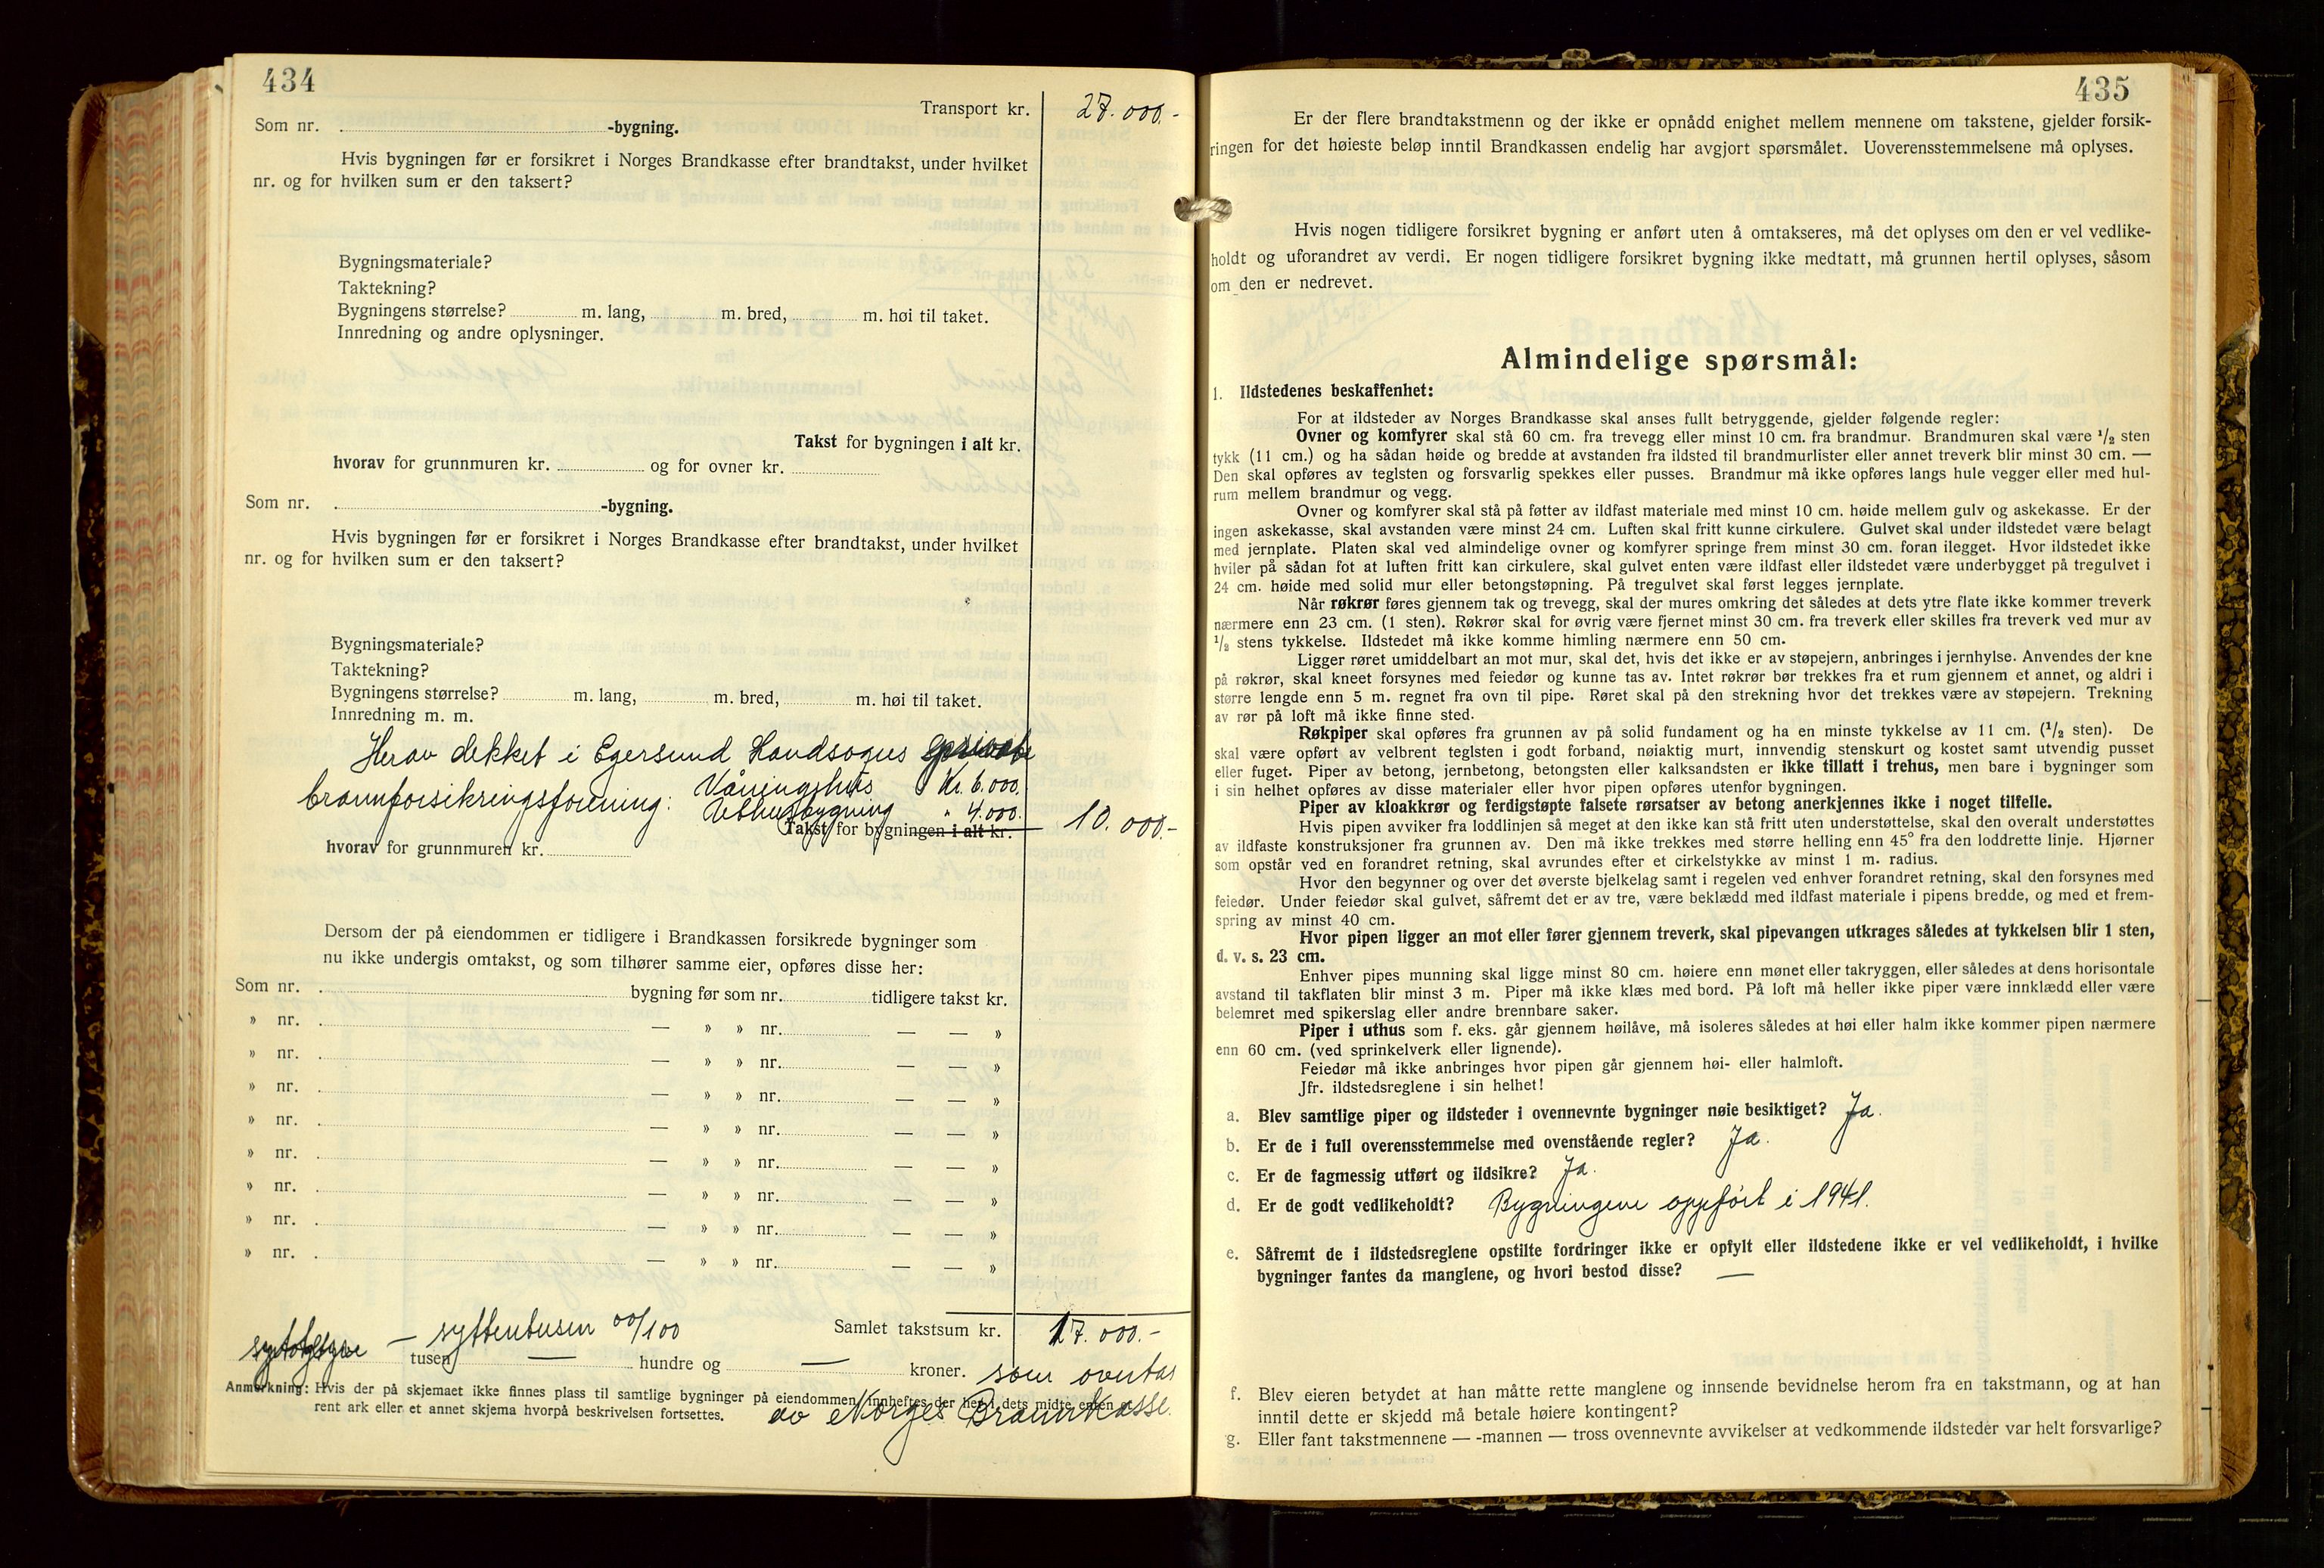 434
Transport kr. 27.000.-
Som nr. -bygning.
Hvis bygningen før er forsikret i Norges Brandkasse efter brandtakst, under hvilket
nr. og for hvilken sum er den taksert?
Bygningsmateriale?
Taktekning?
Bygningens størrelse? m. lang, m. bred, m. høi til taket.
Innredning og andre oplysninger.
Takst for bygningen i alt kr.
hvorav for grunnmuren kr. og for ovner kr.
Som nr. -bygning.
Hvis bygningen før er forsikret i Norges Brandkasse efter brandtakst, under hvilket
nr. og for hvilken sum er den taksert?
Bygningsmateriale?
Taktekning?
Bygningens størrelse? m. lang, m. bred, m. høi til taket.
Innredning m. m.
Herav dekket i Egersund Landsogns private
brannforsikringsforening: Våningshus Kr. 6.000.
Uthusbygning " 4.000.
Takst for bygningen i alt kr. 10.000.-
hvorav for grunnmuren kr.
Dersom der på eiendommen er tidligere i Brandkassen forsikrede bygninger som
nu ikke undergis omtakst, og som tilhører samme eier, opføres disse her:
Som nr. bygning før som nr. tidligere takst kr.
» nr. — » » nr. — — »
» nr. — » » nr. — — »
» nr. — » » nr. — — »
» nr. — » » nr. — — »
» nr. — » » nr. — — »
» nr. — » » nr. — — »
» nr. — » » nr. — — »
» nr. — » » nr. — — »
Samlet takstsum kr. 17.000.-
— syttentusen 00/100
tusen — hundre og — kroner. som overtas
Anmerkning: Hvis der på skjemaet ikke finnes plass til samtlige bygninger på eiendommen, innheftes der her i dets midte enten et
rent ark eller et annet skjema hvorpå beskrivelsen fortsettes. av Norges Brannkasse.
435
Er der flere brandtakstmenn og der ikke er opnådd enighet mellem mennene om takstene, gjelder forsik-
ringen for det høieste beløp inntil Brandkassen endelig har avgjort spørsmålet. Uoverensstemmelsene må oplyses.
Hvis nogen tidligere forsikret bygning er anført uten å omtakseres, må det oplyses om den er vel vedlike-
holdt og uforandret av verdi. Er nogen tidligere forsikret bygning ikke medtatt, må grunnen hertil oplyses, såsom
om den er nedrevet.
Almindelige spørsmål:
1. Ildstedenes beskaffenhet:
For at ildsteder av Norges Brandkasse skal anses fullt betryggende, gjelder følgende regler:
Ovner og komfyrer skal stå 60 cm. fra trevegg eller minst 10 cm. fra brandmur. Brandmuren skal være ½ sten
tykk (11 cm.) og ha sådan høide og bredde at avstanden fra ildsted til brandmurlister eller annet treverk blir minst 30 cm. —
Den skal opføres av teglsten og forsvarlig spekkes eller pusses. Brandmur må ikke opføres langs hule vegger eller med hul-
rum mellem brandmur og vegg.
Ovner og komfyrer skal stå på føtter av ildfast materiale med minst 10 cm. høide mellem gulv og askekasse. Er der
ingen askekasse, skal avstanden være minst 24 cm. Luften skal fritt kunne cirkulere. Gulvet skal under ildstedet være belagt
med jernplate. Platen skal ved almindelige ovner og komfyrer springe frem minst 30 cm. foran ilegget. Hvor ildstedet ikke
hviler på sådan fot at luften fritt kan cirkulere, skal gulvet enten være ildfast eller ildstedet være underbygget på tregulvet i
24 cm. høide med solid mur eller betongstøpning. På tregulvet skal først legges jernplate.
Når røkrør føres gjennem tak og trevegg, skal der mures omkring det således at dets ytre flate ikke kommer treverk
nærmere enn 23 cm. (1 sten). Røkrør skal for øvrig være fjernet minst 30 cm. fra treverk eller skilles fra treverk ved mur av
½ stens tykkelse. Ildstedet må ikke komme himling nærmere enn 50 cm.
Ligger røret umiddelbart an mot mur, skal det, hvis det ikke er av støpejern, anbringes i jernhylse. Anvendes der kne
på røkrør, skal kneet forsynes med feiedør og kunne tas av. Intet røkrør bør trekkes fra et rum gjennem et annet, og aldri i
større lengde enn 5 m. regnet fra ovn til pipe. Røret skal på den strekning hvor det trekkes være av støpejern. Trekning
av rør på loft må ikke finne sted.
Røkpiper skal opføres fra grunnen av på solid fundament og ha en minste tykkelse av 11 cm. (½ sten). De
skal være opført av velbrent teglsten i godt forband, nøiaktig murt, innvendig stenskurt og kostet samt utvendig pusset
eller fuget. Piper av betong, jernbetong, betongsten eller kalksandsten er ikke tillatt i trehus, men bare i bygninger som
i sin helhet opføres av disse materialer eller hvor pipen opføres utenfor bygningen.
Piper av kloakkrør og ferdigstøpte falsete rørsatser av betong anerkjennes ikke i noget tilfelle.
Hvis pipen avviker fra loddlinjen så meget at den ikke kan stå fritt uten understøttelse, skal den overalt understøttes
av ildfaste konstruksjoner fra grunnen av. Den må ikke trekkes med større helling enn 45° fra den loddrette linje. Hjørner
som opstår ved en forandret retning, skal avrundes efter et cirkelstykke av minst 1 m. radius.
Hvor den begynner og over det øverste bjelkelag samt i regelen ved enhver forandret retning, skal den forsynes med
feiedør. Under feiedør skal gulvet, såfremt det er av tre, være beklædd med ildfast materiale i pipens bredde, og med et frem-
spring av minst 40 cm.
Hvor pipen ligger an mot eller fører gjennem treverk, skal pipevangen utkrages således at tykkelsen blir 1 sten,
d. v. s. 23 cm.
Enhver pipes munning skal ligge minst 80 cm. høiere enn mønet eller takryggen, eller således at dens horisontale
avstand til takflaten blir minst 3 m. Piper må ikke klæs med bord. På loft må heller ikke piper være innklædd eller være
belemret med spikerslag eller andre brennbare saker.
Piper i uthus som f. eks. går gjennem høilåve, må isoleres således at høi eller halm ikke kommer pipen nærmere
enn 60 cm. (ved sprinkelverk eller lignende).
Feiedør må ikke anbringes hvor pipen går gjennem høi- eller halmloft.
Jfr. ildstedsreglene i sin helhet!
a. Blev samtlige piper og ildsteder i ovennevnte bygninger nøie besiktiget? Ja.
b. Er de i full overensstemmelse med ovenstående regler? Ja.
c. Er de fagmessig utført og ildsikre? Ja.
d. Er de godt vedlikeholdt? Bygningene oppført i 1941.
e. Såfremt de i ildstedsreglene opstilte fordringer ikke er opfylt eller ildstedene ikke er vel vedlikeholdt, i hvilke
bygninger fantes da manglene, og hvori bestod disse? —
f. Blev eieren betydet at han måtte rette manglene og innsende bevidnelse herom fra en takstmann, og at han
inntil dette er skjedd må betale høiere kontingent?
g. Eller fant takstmennene — -mannen — tross ovennevnte avvikelser at vedkommende ildsteder var helt forsvarlige?